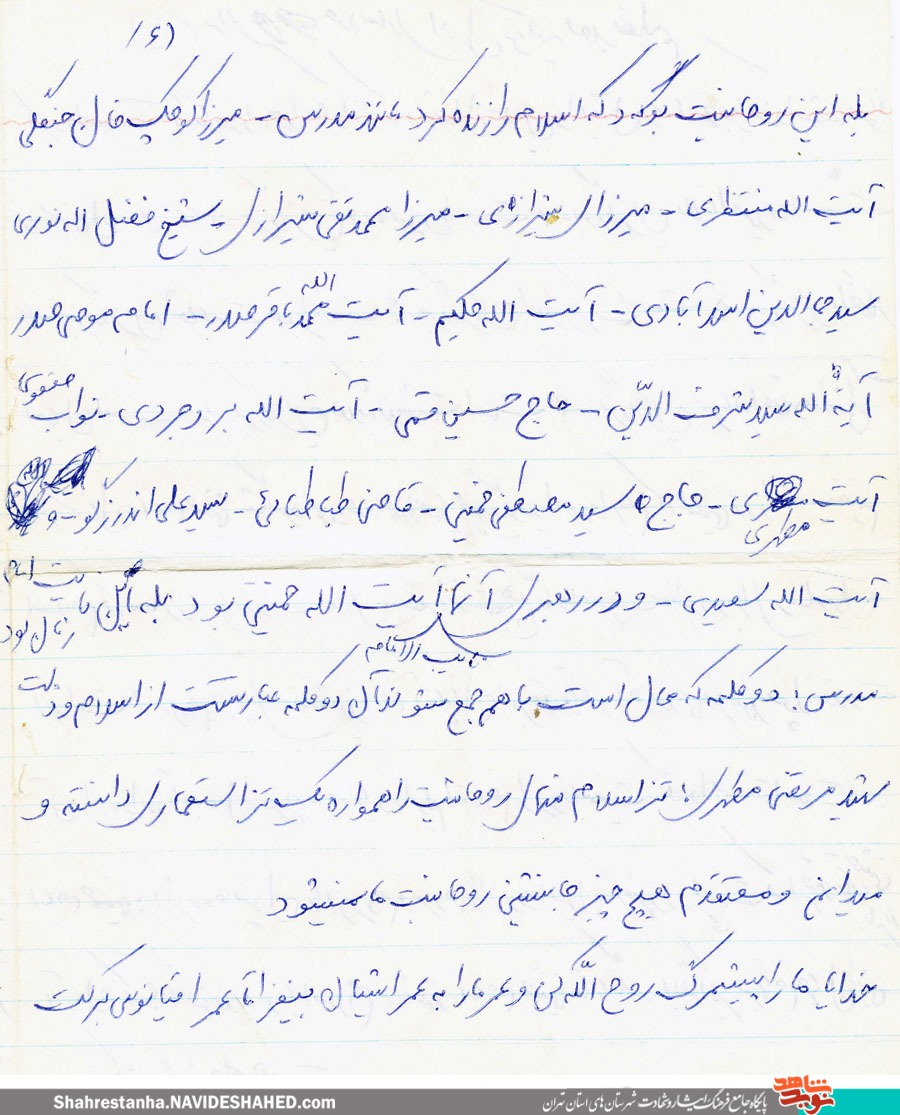 (۶)
بله این روحانیت بود که اسلام را زنده کرد مانند مدرس - میرزا کوچک خان جنگلی
آیت الله منتظری - میرزای شیرازی - میرزا محمد تقی شیرازی - شیخ فضل اله نوری
سید جمالدین اسدآبادی - آیت الله حکیم - آیت الله محمد باقر صدر - امام موسی صدر
آیة الله سید شرف الدّین - حاج حسین قمی - آیت الله بروجردی - نواب صفوی
آیت مطهری - حاج سید مصطفی خمینی - قاضی طباطبائی - سید علی اندرزگو - و
آیت الله سعیدی - و در رهبری آنها نایب الامام آیت الله خمینی بود بله
مدرس: دو کلمه که محال است با هم جمع شوند آن دو کلمه عبارتست از اسلام و ذلت
شهید مرتضی مطهری: تز اسلام منهای روحانیت را همواره یک تز استعماری دانسته و
میدانم و معتقدم هیچ چیز جانشین روحانیت ما نمیشود
خدایا ما را پیشمرگ روح اللّه کن و عمر ما را به عمر ایشان بیفزا تا عمر اقیانوس برکت
نوید شاهد
پایگاه جامع فرهنگ ایثار و شهادت شهرستان های استان تهران
Shahrestanha.NAVIDESHAHED.com